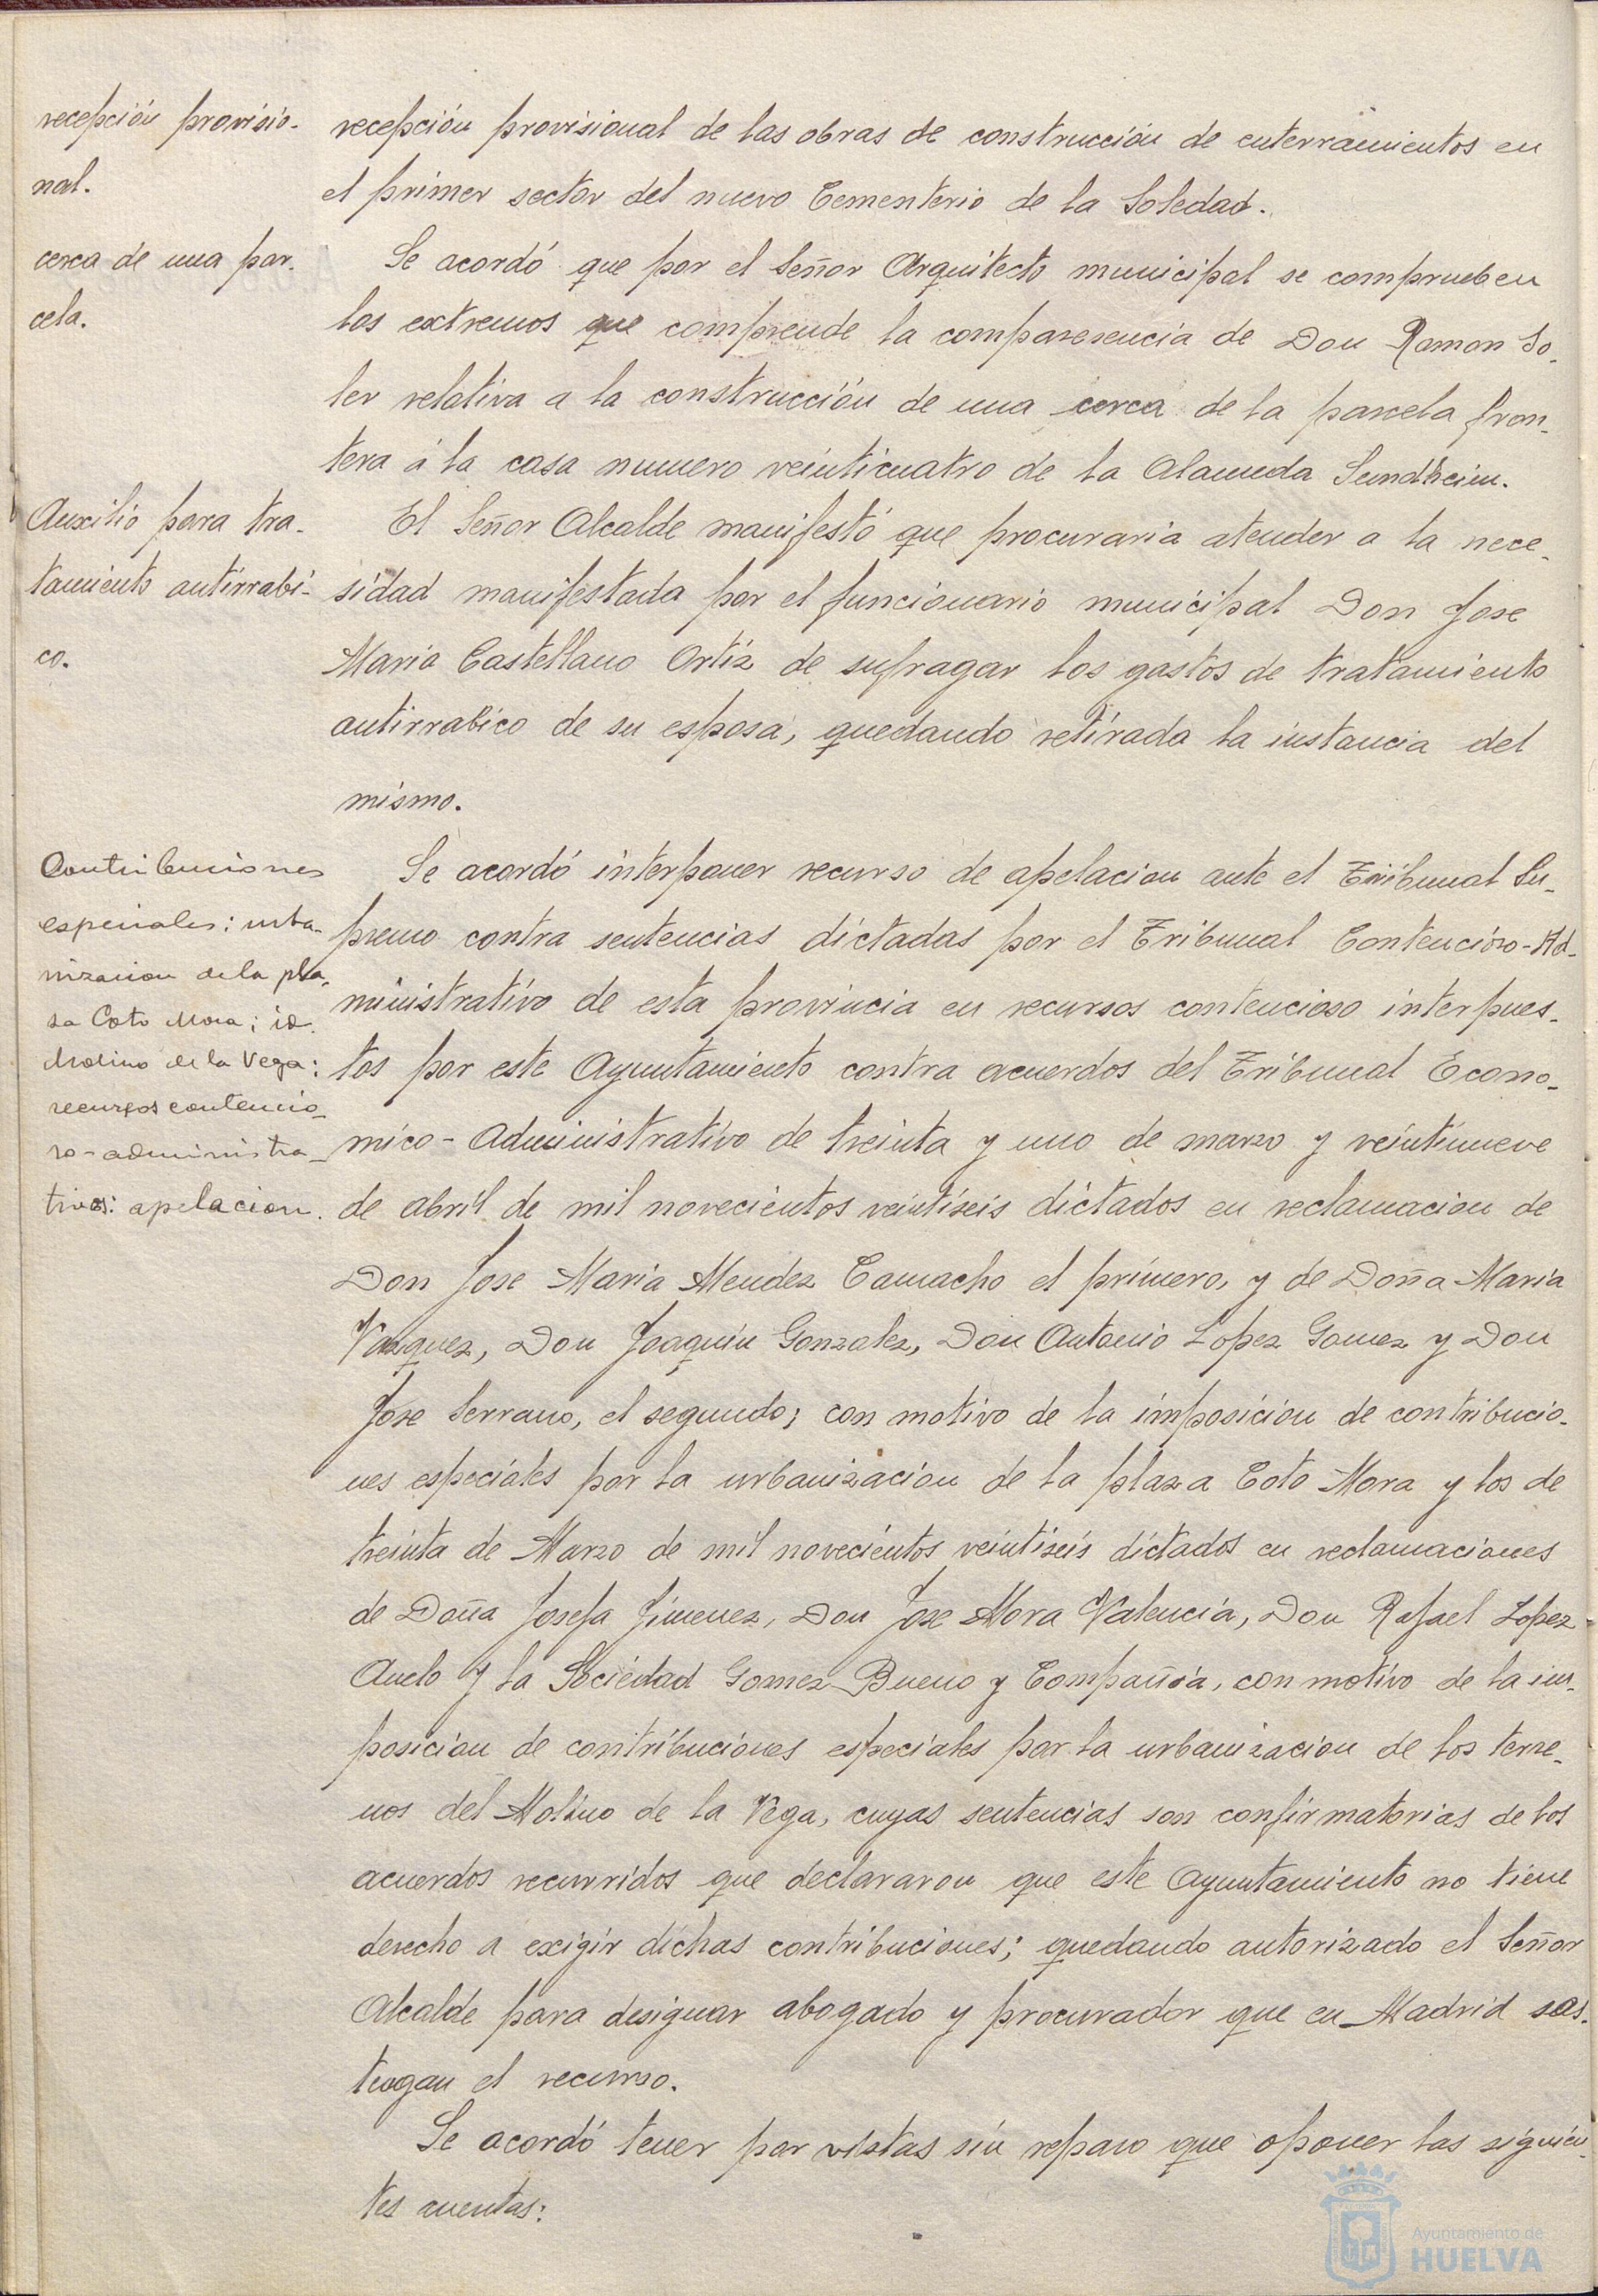 recepción provisio-
nal.
recepción provisional de las obras de construcción de enterramientos en
el primer sector del nuevo Cementerio de la Soledad.
cerca de una par-
cela.
Se acordó que por el Señor Arquitecto municipal se comprueben
los extremos que comprende la comparesencia de Don Ramon So-
ler relativa a la construcción de una cerca de la parcela fron-
tera á la casa numero veinticuatro de la Alameda Sundheim.
Auxilio para tra-
tamiento antirrabi-
co.
El Señor Alcalde manifestó que procuraria atender a la nece-
sidad manifestada por el funcionario municipal Don Jose
Maria Castellano Ortiz de sufragar los gastos de tratamiento
antirrabico de su esposa, quedando retirada la instancia del
mismo.
Contribuciones
especiales: urba-
nizacion de la pla-
za Coto Mora; id.
Molino de la Vega:
recursos contencio-
so-administra-
tivos: apelacion.
Se acordó interponer recurso de apelacion ante el Tribunal Su-
premo contra sentencias dictadas por el Tribunal Contencioso-Ad-
ministrativo de esta provincia en recursos contencioso interpues-
tos por este Ayuntamiento contra acuerdos del Tribunal Econo-
mico-Administrativo de treinta y uno de marzo y veintinueve
de abril de mil novecientos veintiseis dictados en reclamacion de
Don Jose Maria Mendez Camacho el primero, y de Doña Maria
Vazquez, Don Joaquin Gonzalez, Don Antonio Lopez Gomez y Don
Jose Serrano, el segundo; con motivo de la imposicion de contribucio-
nes especiales por la urbanizacion de la plaza Coto Mora y los de
treinta de Marzo de mil novecientos veintiseis dictados en reclamaciones
de Doña Josefa Jimenez, Don Jose Mora Valencia, Don Rafael Lopez
y la Sociedad Gomez Bueno y Compañia, con motivo de la im-
posicion de contribuciones especiales por la urbanizacion de los terre-
nos del Molino de la Vega, cuyas sentencias son confirmatorias de los
acuerdos recurridos que declararon que este Ayuntamiento no tiene
derecho a exigir dichas contribuciones; quedando autorizado el Señor
Alcalde para designar abogado y procurador que en Madrid sos-
tengan el recurso.
Se acordó tener por vistas sin reparo que oponer las siguien-
tes cuentas:
Ayuntamiento de
HUELVA